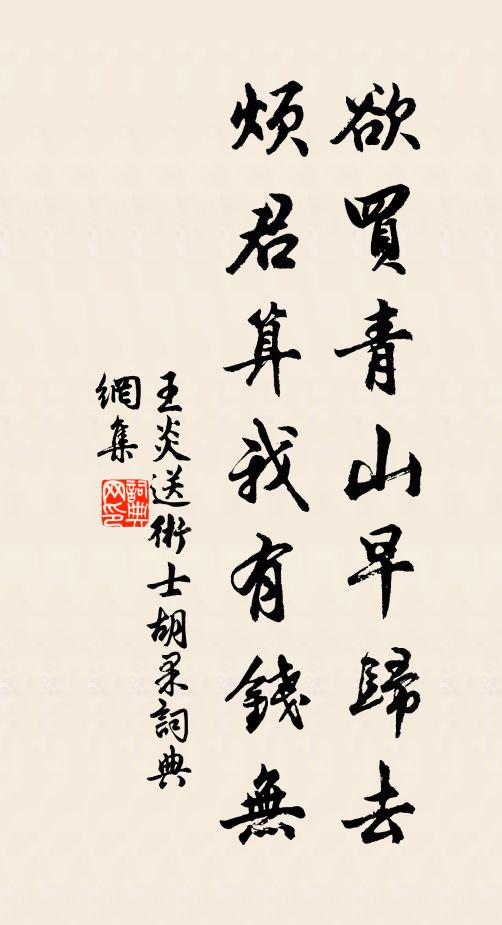 欲買青山早歸去
煩君算我有錢無
王炎送術士胡杲詞典
網集
詞典網印